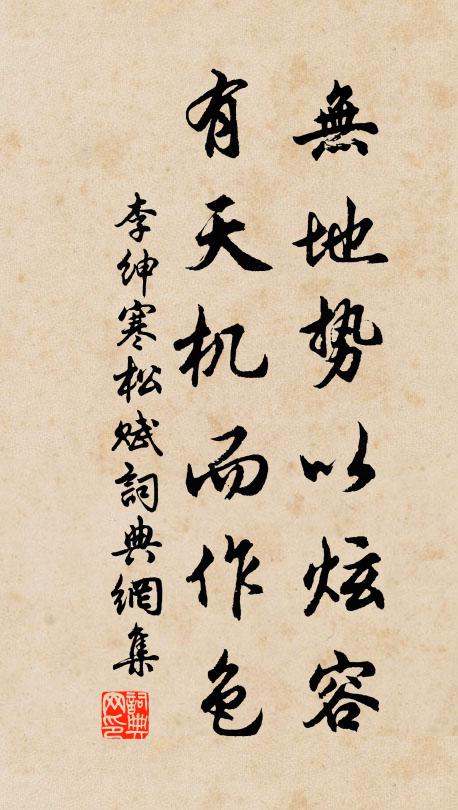 無地势以炫容
有天机而作色
李绅寒松赋詞典網集
詞典网印